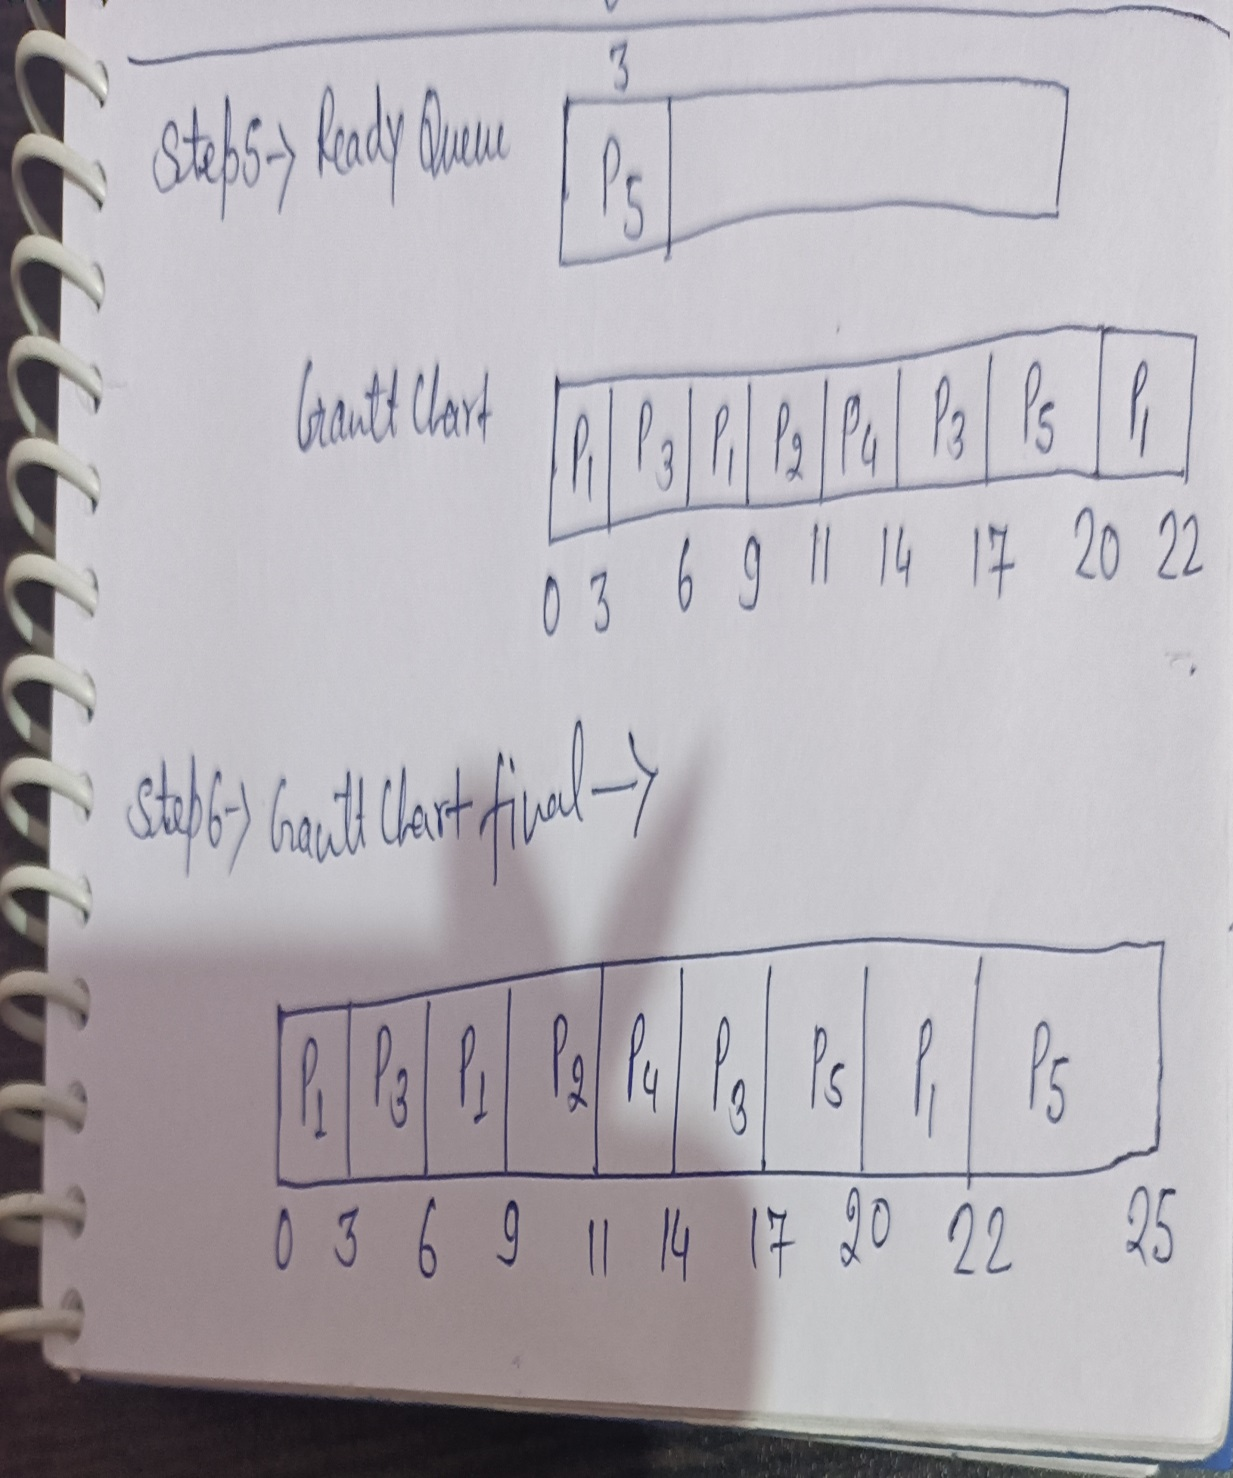 3
Step5→ Ready Queue P5
Gantt Chart P1 P3 P1 P2 P4 P3 P5 P1
0 3 6 9 11 14 17 20 22
Step6→ Gantt Chart final→
P1 P3 P1 P2 P4 P3 P5 P1 P5
0 3 6 9 11 14 17 20 22 25